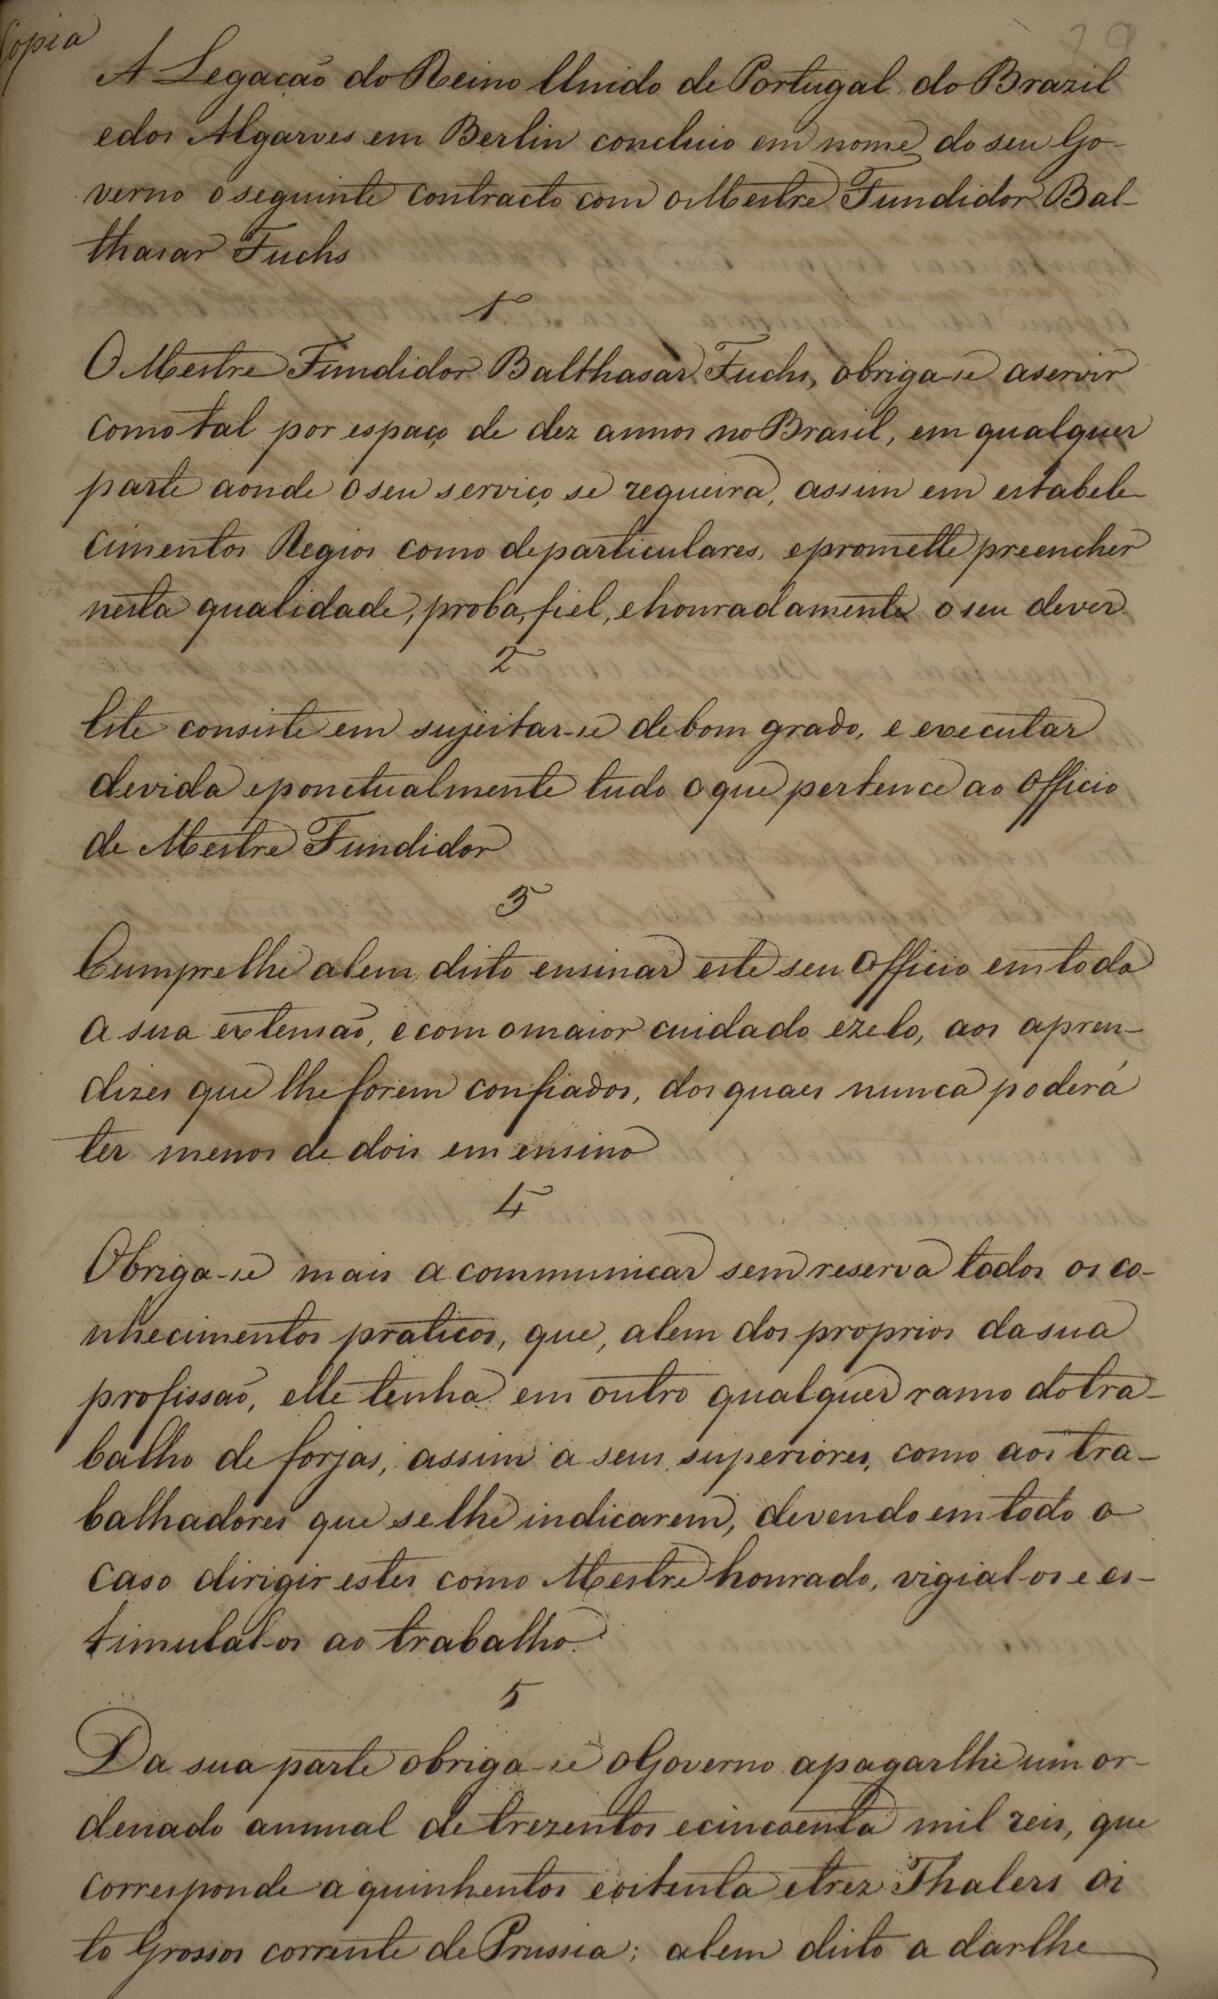 Copia
A Legação do Reino Unido de Portugal do Brazil
e dos Algarves em Berlin concluio em nome do seu Go-
verno o seguinte contracto com o Mestre Fundidor Bal-
thasar Fuchs
1
O Mestre Fundidor Balthasar Fuchs, obriga-se a servir
como tal por espaço de dez annos no Brasil, em qualquer
parte aonde o seu serviço se requeira, assim em estabele-
cimentos Regios como de particulares, e promette preencher
nesta qualidade, proba, fiel, e honradamente o seu dever.
2
Este consiste em sujeitar-se de bom grado, e executar
devida e ponctualmente tudo o que pertence ao Officio
de Mestre Fundidor
3
Cumpre lhe alem disto ensinar este seu Officio em toda
a sua extensão, e com o maior cuidado e zelo, aos apren-
dizes que lhe forem confiados, dos quaes nunca poderá
ter menos de dois em ensino
4
Obriga-se mais a communicar sem reserva todos os co-
nhecimentos praticos, que, alem dos proprios da sua
profissão, elle tenha em outro qualquer ramo do tra-
balho de forjas, assim a seus superiores, como aos tra-
balhadores que se lhe indicarem, devendo em todo o
caso dirigir estes como Mestre honrado, vigial-os e es-
timulal-os ao trabalho.
5
Da sua parte obriga-se o Governo a pagar lhe um or-
denado annual de trezentos e cincoenta mil reis, que
corresponde a quinhentos e oitenta e trez Thalers oi
to Grossos corrente de Prussia; alem disto a dar lhe